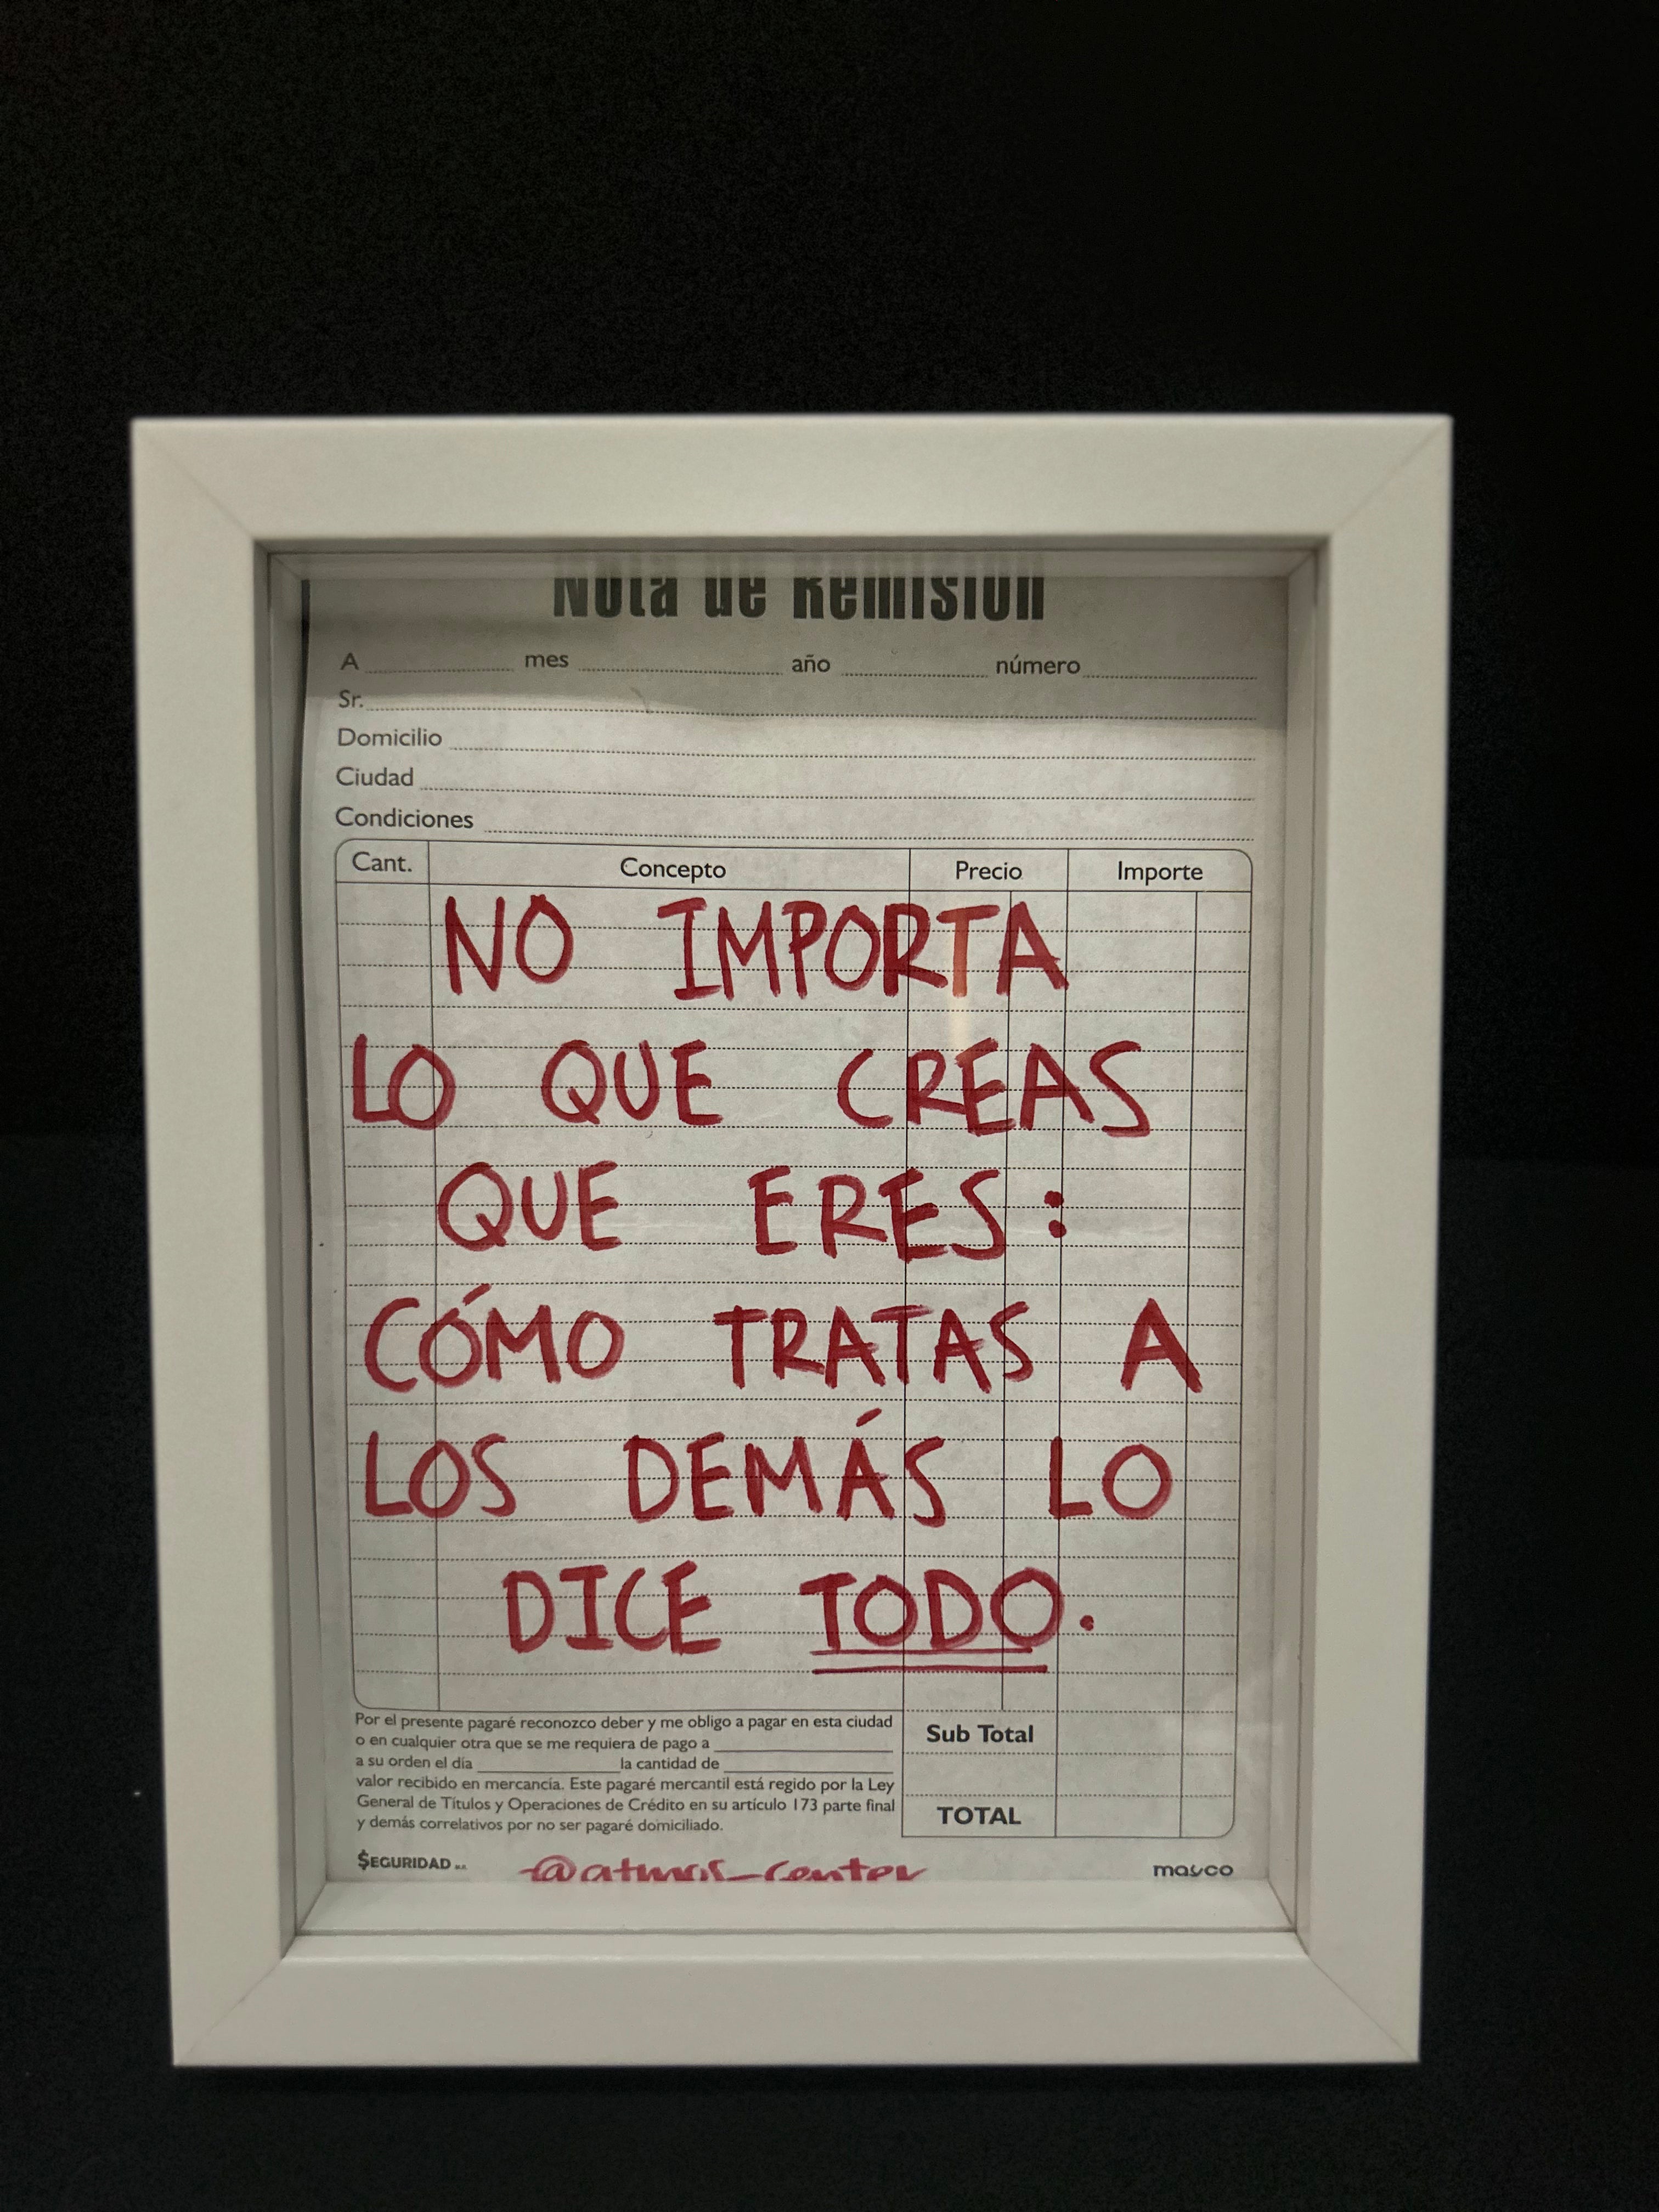 Nota de Remisión
A mes año número
Sr.
Domicilio
Ciudad
Condiciones
Cant. Concepto Precio Importe
NO IMPORTA
LO QUE CREAS
QUE ERES:
CÓMO TRATAS A
LOS DEMÁS LO
DICE TODO.
Por el presente pagaré reconozco deber y me obligo a pagar en esta ciudad
o en cualquier otra que se me requiera de pago a
a su orden el día la cantidad de
valor recibido en mercancía. Este pagaré mercantil está regido por la Ley
General de Titulos y Operaciones de Crédito en su artículo 173 parte final
y demás correlativos por no ser pagaré domiciliado.
Sub Total
TOTAL
$EGURIDAD @atmos_center mayco